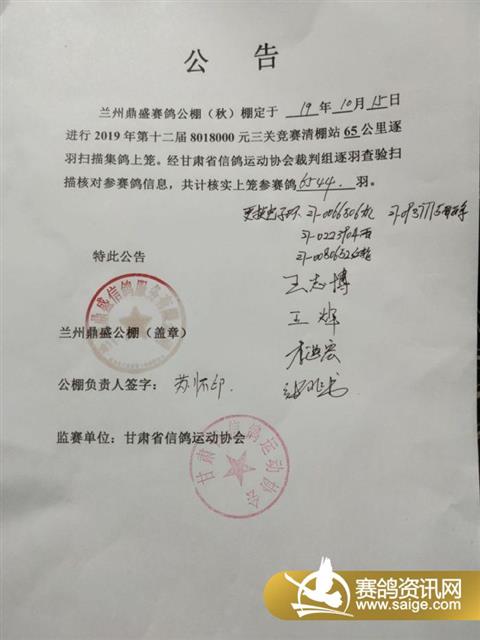 公 告
兰州鼎盛赛鸽公棚（秋）棚定于 19 年 10 月 15 日
进行 2019 年第十二届 8018000 元三关竞赛清棚站 65 公里逐
羽扫描集鸽上笼。经甘肃省信鸽运动协会裁判组逐羽查验扫
描核对参赛鸽信息，共计核实上笼参赛鸽 6544. 羽。
更换电子环
特此公告
王志博
王辉
兰州鼎盛公棚（盖章）
鼎盛信鸽服务有限
公棚负责人签字： 苏怀印
监赛单位：甘肃省信鸽运动协会
甘肃省信鸽运动协会
赛鸽资讯网
www.saige.com